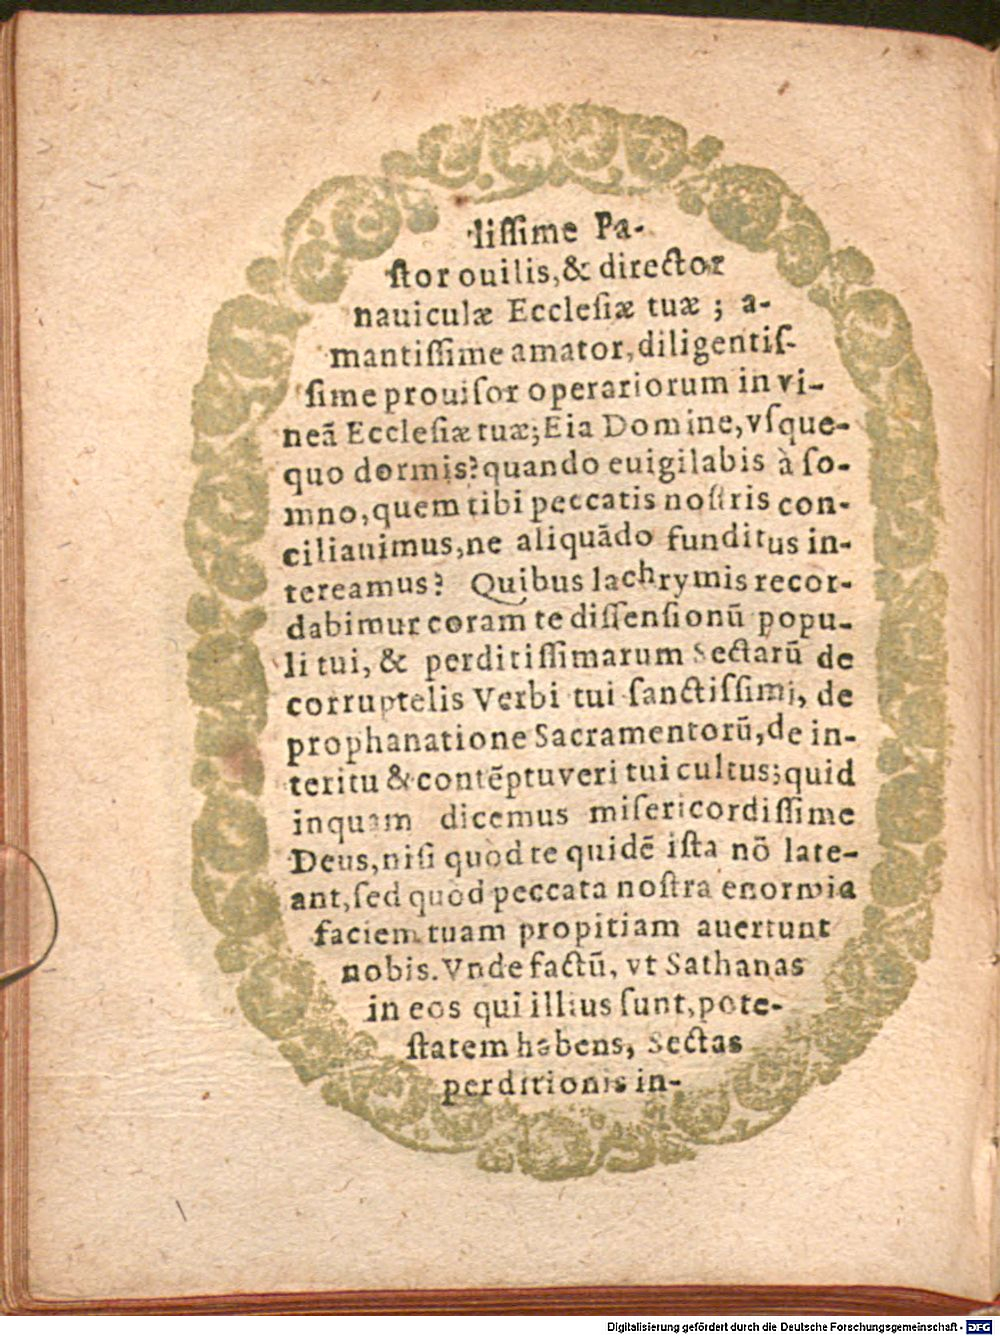 lissime Pa-
stor ouilis, & director
nauiculæ Ecclesiæ tuæ ; a-
mantissime amator, diligentis-
sime prouisor operariorum in vi-
neā Ecclesiæ tuæ; Eia Domine, vsque-
quo dormis? quando euigilabis à so-
mno, quem tibi peccatis nostris con-
ciliauimus, ne aliquādo funditus in-
tereamus? Quibus lachrymis recor-
dabimur coram te dissensionū popu-
li tui, & perditissimarum Sectarū de
corruptelis Verbi tui sanctissimi, de
prophanatione Sacramentorū, de in-
teritu & contēptu veri tui cultus; quid
inquam dicemus misericordissime
Deus, nisi quòd te quidē ista nō late-
ant, sed quòd peccata nostra enormia
faciem tuam propitiam auertunt
nobis. Vnde factū, vt Sathanas
in eos qui illius sunt, pote-
statem habens, Sectas
perditionis in-
Digitalisierung gefördert durch die Deutsche Forschungsgemeinschaft - DFG